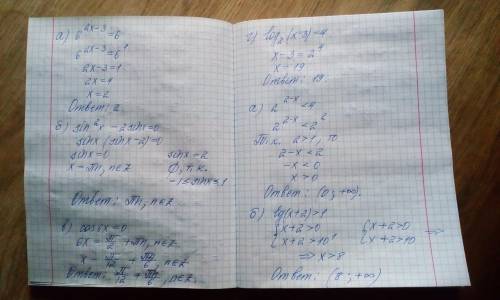 а) 6^(2x-3) = 6
6^(2x-3) = 6^1
2x-3=1
2x=4
x=2
Ответ: 2
б) sin²x - 2sinx=0
sinx(sinx-2)=0
sinx=0 sinx=2
x=πn, n∈Z ∅, т.к.
-1≤sinx≤1
Ответ: πn, n∈Z.
в) cos6x=0
6x = π/2 + πn, n∈Z
x = π/12 + πn/6, n∈Z
Ответ: π/12 + πn/6, n∈Z.
г) log₂(x-3)=4
x-3=2^4
x=19
Ответ: 19.
а) 2^(2-x) < 4
2^(2-x) < 2^2
Т.к. 2>1, то
2-x<2
-x<0
x>0
Ответ: (0;+∞).
б) lg(x+2)>1
{x+2>0 {x+2>0 ⇒
{x+2>10¹ {x+2>10
⇒ x>8
Ответ: (8;+∞)